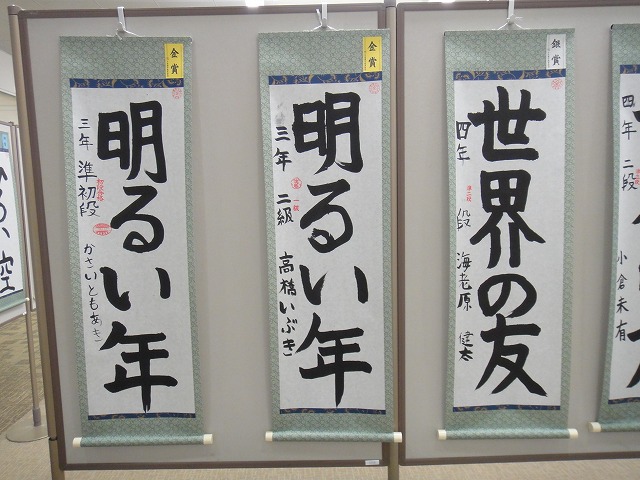 金賞
明るい年
三年 準初段 かさいともあき
金賞
明るい年
三年 二級 高橋いぶき
銀賞
世界の友
四年 段 海老原 健太
四年 二段 小倉未有
い空